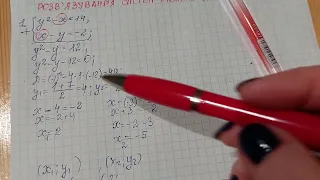 РОЗВ'ЯЗУВАННЯ СИСТЕМ
1. { y² - x = 14,
+ x - y = -2;
y² - y = 12;
y² - y - 12 = 0;
D = (-1)² - 4·1·(-12) = 49
y₁ = (1+7)/2 = 4; y₂ =
x - 4 = -2
x = -2+4
x₁ = 2
x - (-3) = -2
x + 3 = -2
x = -2 - 3
x₂ = -5
(x₁; y₁) (x₂; y₂)